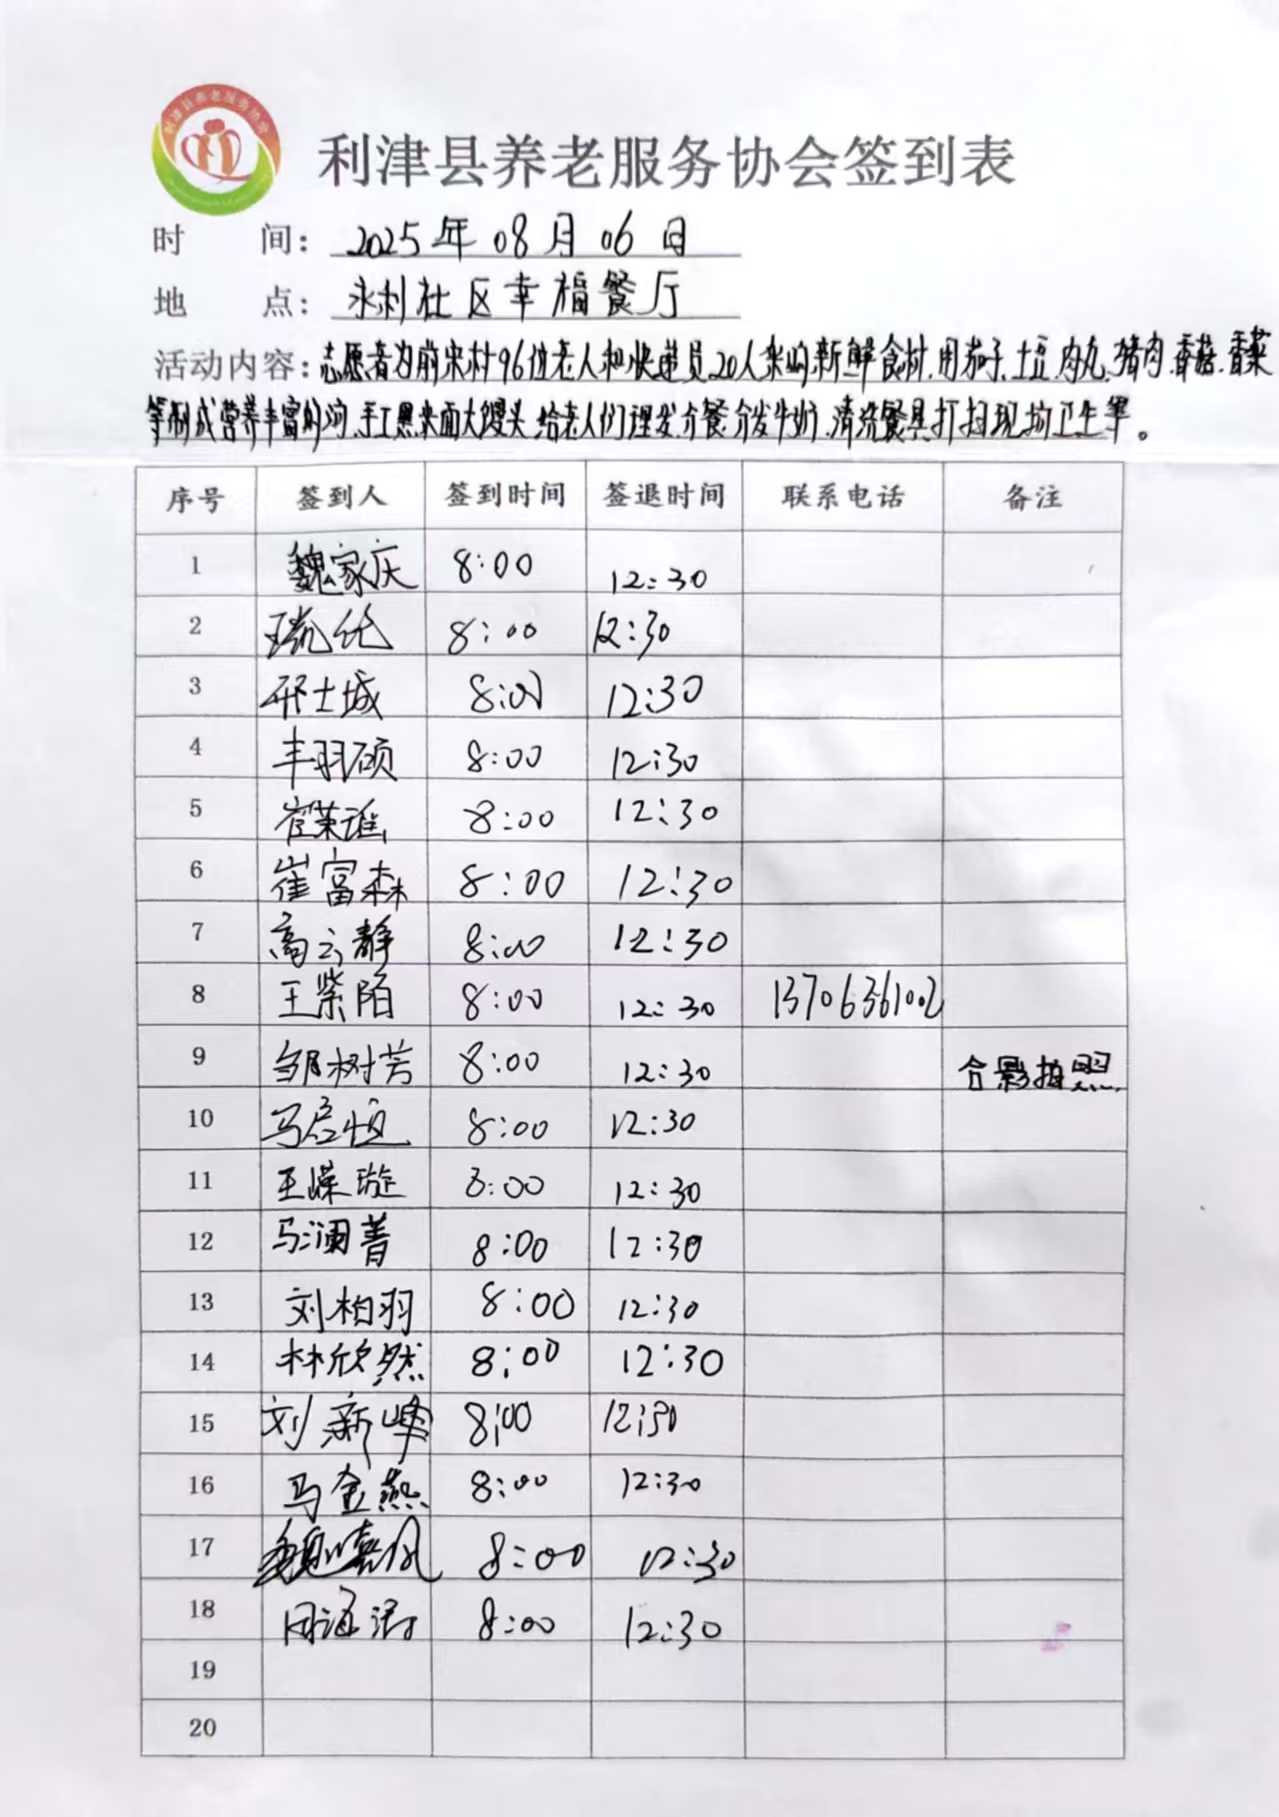 利津县养老服务协会
利津县养老服务协会签到表
时 间: 2025年08月06日
地 点: 永利社区幸福餐厅
活动内容:志愿者为前宋村96位老人和快递员20人采购新鲜食材.用茄子.土豆.肉丸.猪肉.香菇.香菜
等制成营养丰富的 .手工黑米面大馒头.给老人们理发.分餐.分发牛奶.清洗餐具打扫现场卫生等。
序号 签到人 签到时间 签退时间 联系电话 备注
1 魏家庆 8:00 12:30
2 8:00 12:30
3 邢士城 8:00 12:30
4 丰羽硕 8:00 12:30
5 崔荣 8:00 12:30
6 崔富森 8:00 12:30
7 高云静 8:00 12:30
8 王紫陌 8:00 12:30 13706361002
9 邹树芳 8:00 12:30 合影拍照.
10 马启恒 8:00 12:30
11 王嵘璇 8:00 12:30
12 马澜菁 8:00 12:30
13 刘柏羽 8:00 12:30
14 林欣然 8:00 12:30
15 刘新峰 8:00 12:30
16 马金燕 8:00 12:30
17 魏 8:00 12:30
18 周海涛 8:00 12:30
19
20